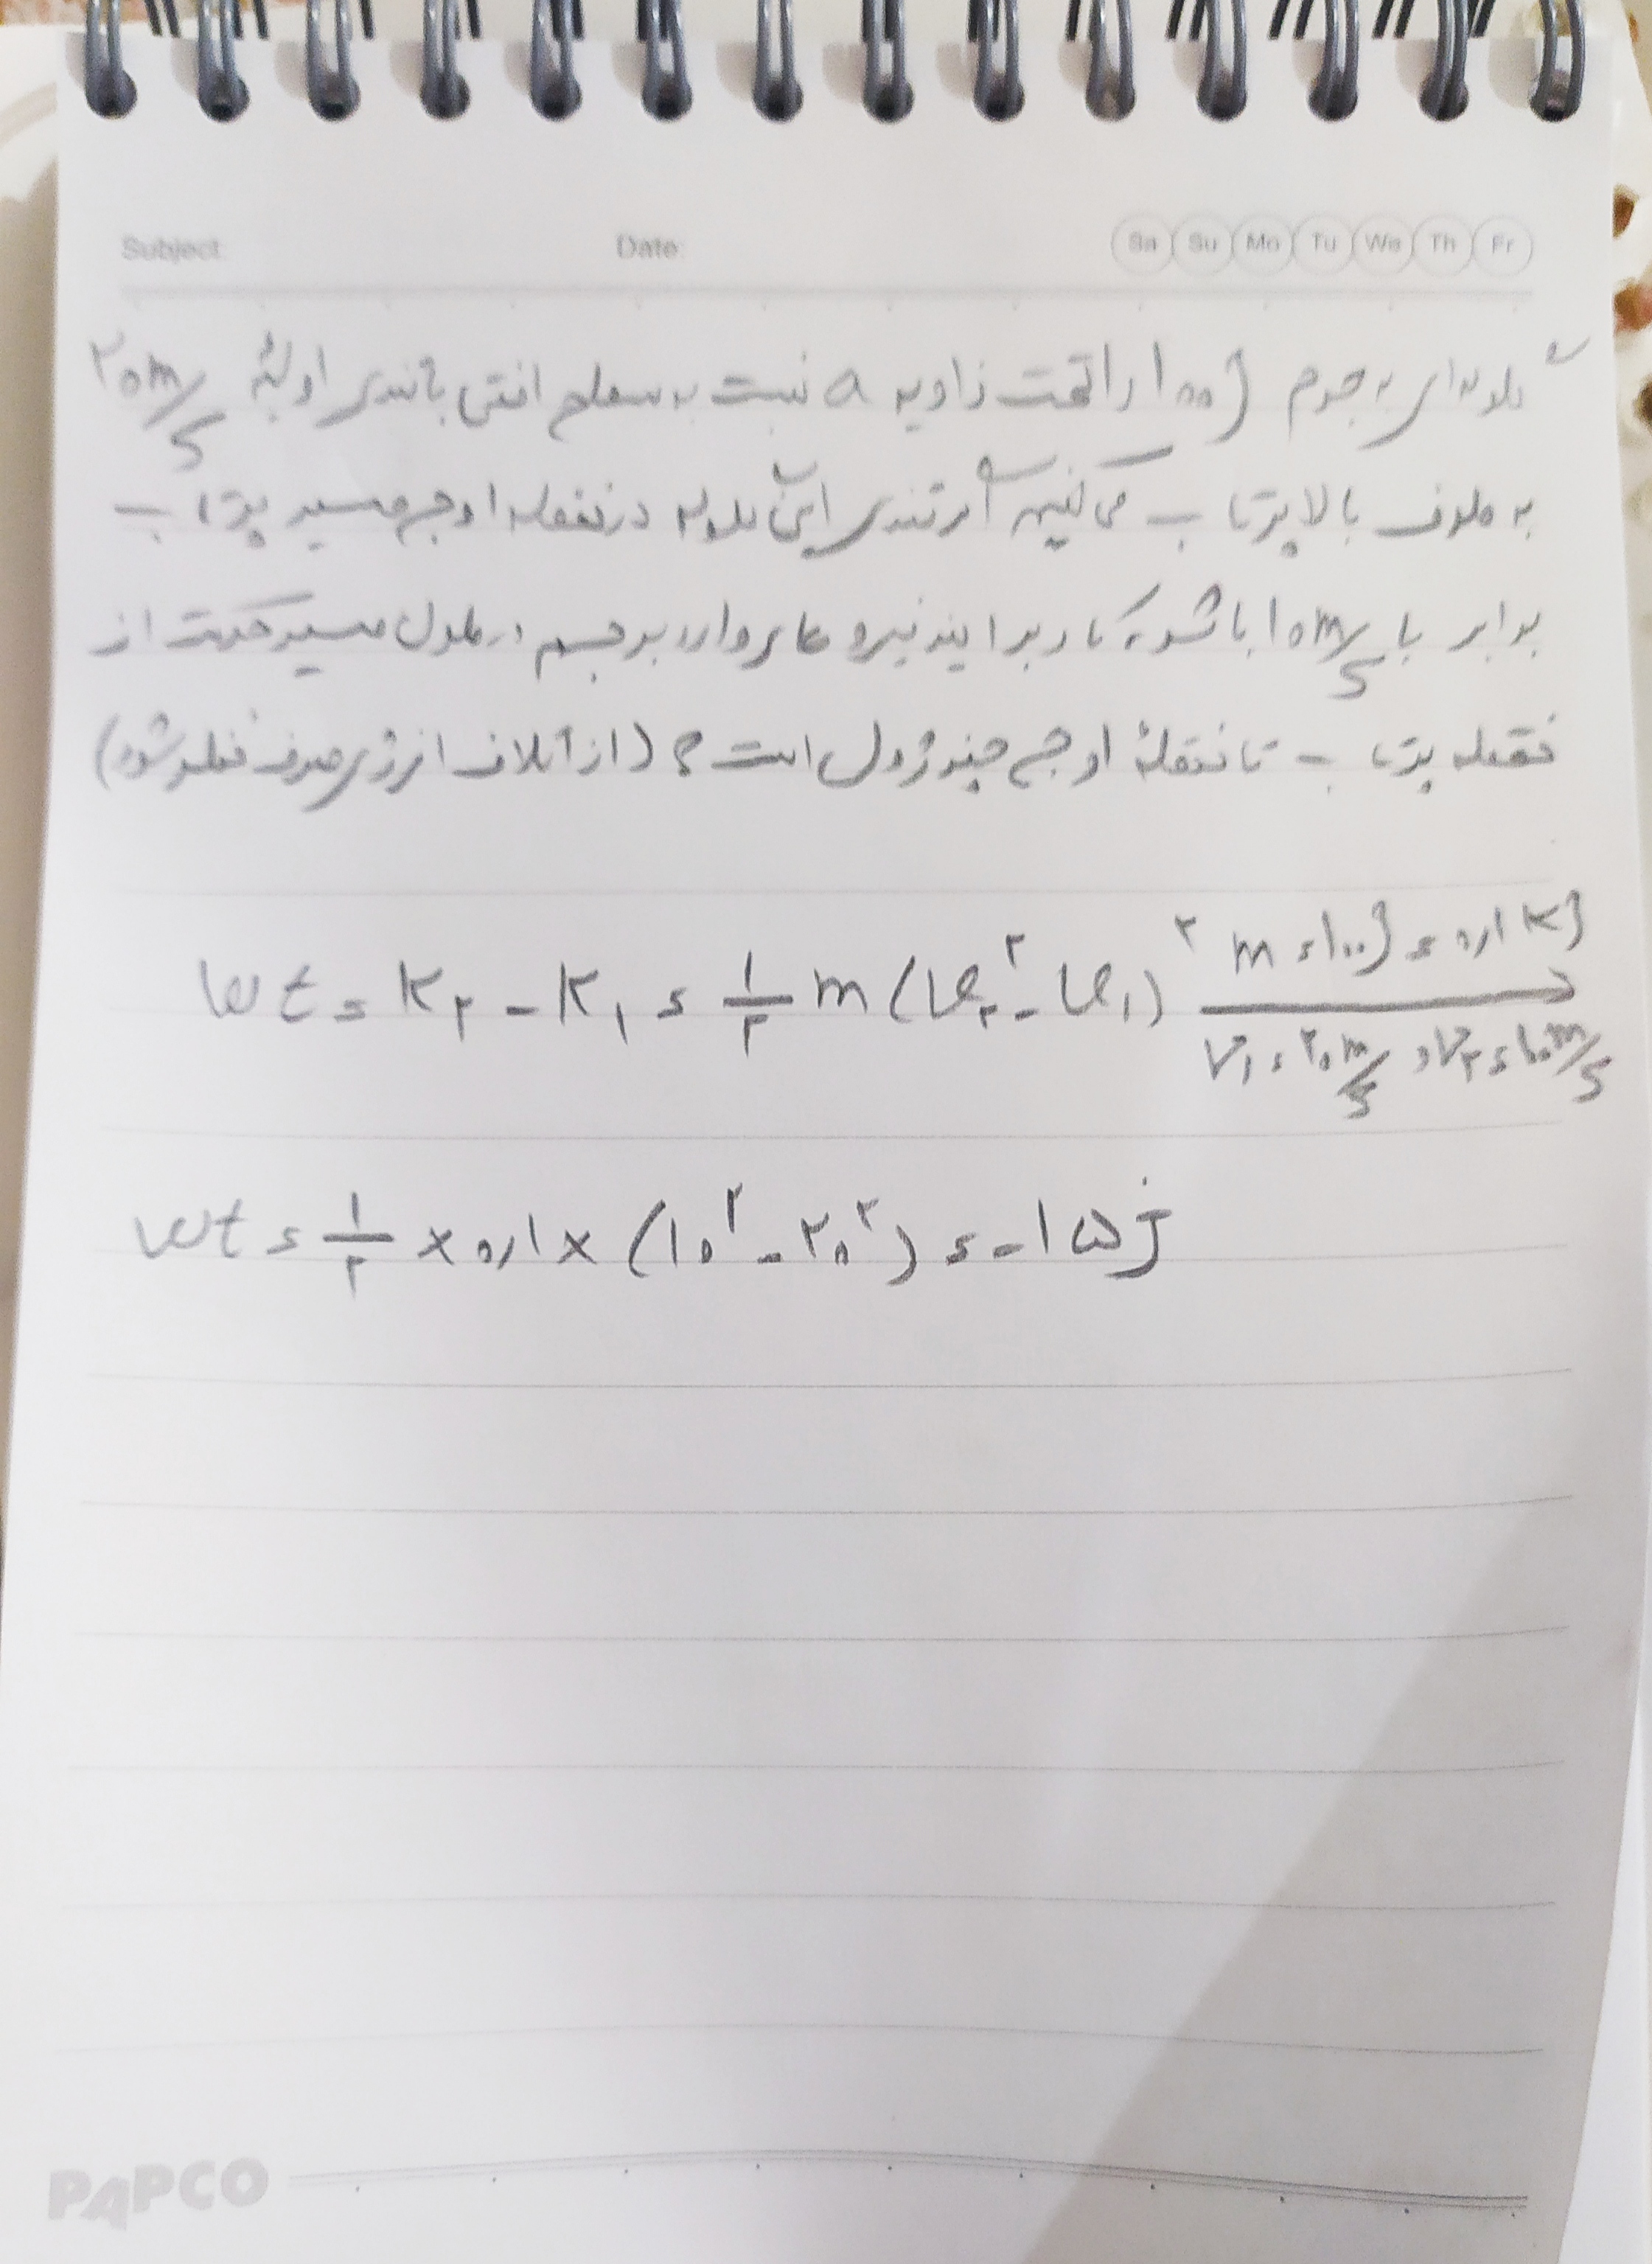 Subject:
Date:
Sa Su Mo Tu We Th Fr
گلوله‌ای به جرم ۱۰۰g را تحت زاویه a نسبت به سطح افقی با تندی اولیهٔ ۲۰m/s
به طرف بالا پرتاب می کنیم اگر تندی این گلوله در نقطه اوج مسیر پرتاب
برابر با ۱۰m/s باشد، کار برایند نیرو های وارد بر جسم در طول مسیر حرکت از
نقطه پرتاب تا نقطهٔ اوج چند ژول است؟ (از اتلاف انرژی صرف نظر شود)
Wt = K۲ - K۱ = ۱/۲ m (V۲² - V۱)² m = ۱۰۰g = ۰٫۱ kg
V۱ = ۲۰m/s , V۲ = ۱۰m/s
Wt = ۱/۲ × ۰٫۱ × (۱۰² - ۲۰²) = -۱۵j
PAPCO